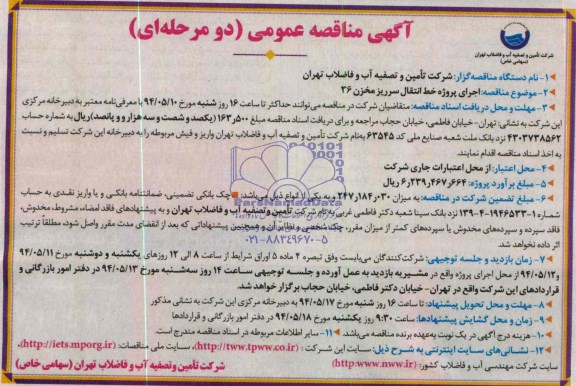 آگهی مناقصه عمومی (دو مرحله‌ای)
شرکت تأمین و تصفیه آب و فاضلاب تهران
(سهامی خاص)
۱- نام دستگاه مناقصه‌گزار: شرکت تأمین و تصفیه آب و فاضلاب تهران
۲- موضوع مناقصه: اجرای پروژه خط انتقال سرریز مخزن ۳۶
۳- مهلت و محل دریافت اسناد مناقصه: متقاضیان شرکت در مناقصه می‌توانند حداکثر تا ساعت ۱۶ روز شنبه مورخ ۹۴/۰۵/۱۰ با معرفی‌نامه معتبر به دبیرخانه مرکزی
این شرکت به نشانی: تهران- خیابان فاطمی، خیابان حجاب مراجعه و برای دریافت اسناد مناقصه مبلغ ۱۶۳٫۵۰۰ (یکصد و شصت و سه هزار و پانصد) ریال به شماره حساب
۴۳۰۳۷۳۸۵۶۲ نزد بانک ملت شعبه صنایع ملی کد ۶۳۵۴۵ به‌نام شرکت تأمین و تصفیه آب و فاضلاب تهران واریز و فیش مربوطه را به دبیرخانه این شرکت تسلیم و نسبت
به اخذ اسناد مناقصه اقدام نمایند.
۴- محل اعتبار: از محل اعتبارات جاری شرکت
۵- مبلغ برآورد پروژه: ۶٫۲۳۹٫۴۶۷٫۶۶۴ ریال
۶- مبلغ تضمین شرکت در مناقصه: به میزان ۲۴۷٫۱۸۴٫۰۳۰ و به یکی از انواع ذیل می‌باشد: چک بانکی تضمینی، ضمانتنامه بانکی و یا واریز نقدی به حساب
شماره ۱-۱۹۴۶۵۳۳-۴-۱۳۹ نزد بانک سینا شعبه دکتر فاطمی غربی به‌نام شرکت تأمین و تصفیه آب و فاضلاب تهران و به پیشنهادهای فاقد امضاء، مشروط، مخدوش،
فاقد سپرده و سپرده‌های مخدوش یا سپرده‌های کمتر از میزان مقرر، چک شخصی و نظایر آن و همچنین پیشنهاداتی که بعد از انقضای مدت مقرر واصل شود، مطلقاً ترتیب
اثر داده نخواهد شد.
۷- زمان بازدید و جلسه توجیهی: شرکت‌کنندگان می‌بایست وفق تبصره ۲ ماده ۵ اوراق شرایط از ساعت ۸ الی ۱۲ روزهای یکشنبه و دوشنبه مورخ ۹۴/۰۵/۱۱
و ۹۴/۰۵/۱۲ از محل اجرای پروژه واقع در مشیریه بازدید به عمل آورده و جلسه توجیهی ساعت ۱۴ روز سه‌شنبه مورخ ۹۴/۰۵/۱۳ در دفتر امور بازرگانی و
قراردادهای این شرکت واقع در تهران- خیابان دکتر فاطمی، خیابان حجاب برگزار خواهد شد.
۸- مهلت و محل تحویل پیشنهاد: تا ساعت ۱۶ روز شنبه مورخ ۹۴/۰۵/۱۷ به دبیرخانه مرکزی این شرکت به نشانی مذکور
۹- زمان و محل گشایش پیشنهادها: ساعت ۹:۳۰ روز یکشنبه مورخ ۹۴/۰۵/۱۸ در دفتر امور بازرگانی و قراردادها
۱۰- هزینه درج آگهی در یک نوبت به‌عهده برنده مناقصه می‌باشد. ۱۱- سایر اطلاعات مربوطه در اسناد مناقصه مندرج است.
۱۲- نشانی‌های سایت اینترنتی به شرح ذیل: سایت این شرکت: (http://tww.tpww.co.ir)، سایت ملی مناقصات: (http://iets.mporg.ir)،
سایت شرکت مهندسی آب و فاضلاب کشور: (http:www.nww.ir)
شرکت تأمین و تصفیه آب و فاضلاب تهران (سهامی خاص)
ParsNamadData
۰۲۱-۸۸۳۴۹۶۷۰-۵